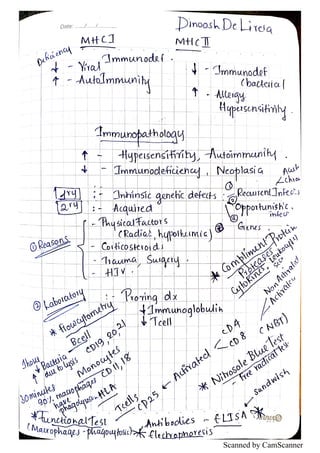 Date: / /
Dinoosh De Livera
MHC I
MHC II
Deficiency
↓ - Viral Immunodef.
↑ - AutoImmunity
↓ - Immunodef
(bacterial
↑ - Allergy
Hypersensitivity.
Immunopathology
↑ - Hypersensitivity, Autoimmunity.
↓ - Immunodeficiency, Neoplasia
1ry :- Intrinsic genetic defects
2ry :- Acquired
① Recurrent Infec
② Opportunistic.
infec
③ Genes
① Reasons
- Physical Factors
(Radiat, hypothermic)
- Corticosteroids
- Trauma, Surgery.
- HIV.
* Compliment Protein
Cytokines
② Laboratory
Proving dx
↓ Immunoglobulin
↓ T cell
* flowcytometry
B cell
CD19, 20, 21
Monocytes
CD11, 18
T cells
CD25
Activated
CD4
CD8
Non Activated
Activated
* Nitrosole Blue Test (NBT)
- Free radical test
1 hour
↓ Bacteria
↑ due to lysis
30 minutes
90% macrophages
have
phagolysis
HLA
* Functional Test
(Macrophages - phagocytosis)
Antibodies - ELISA *
* Electrophoresis
Sandwish
Scanned by CamScanner